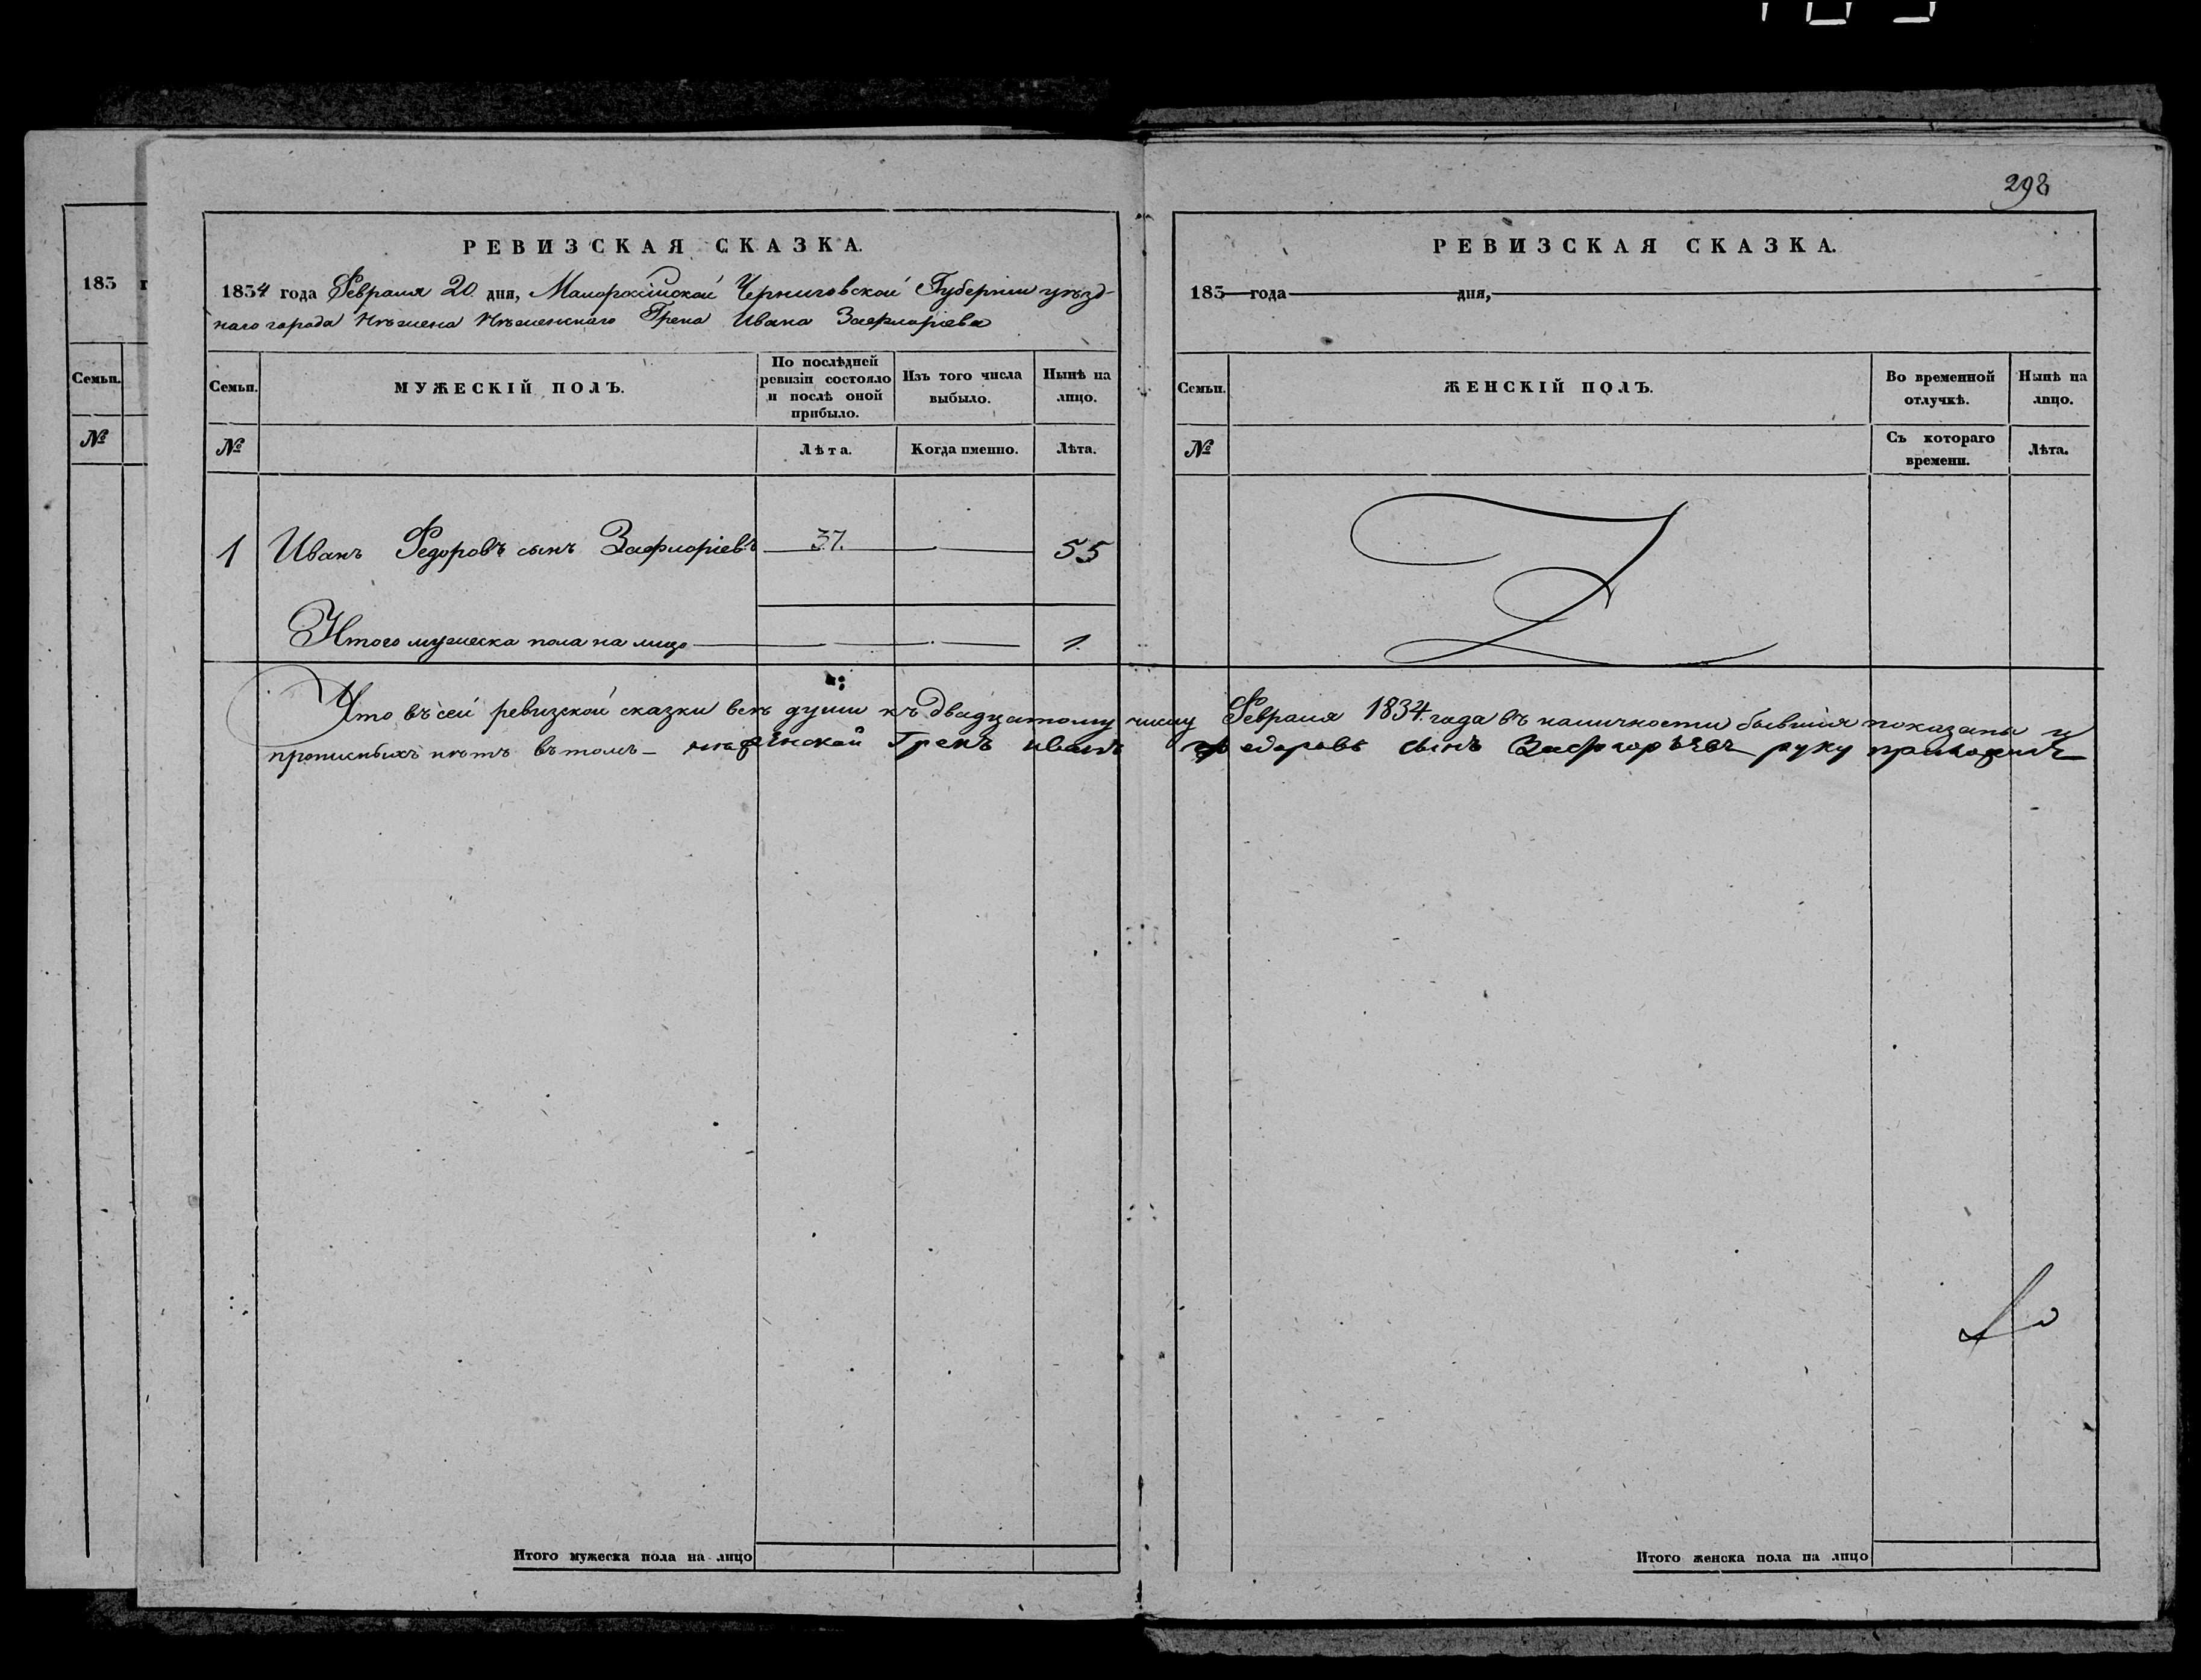 298
183
Семьи.
№
РЕВИЗСКАЯ СКАЗКА.
1834 года Февраля 20 дня, Малороссійской Черниговской Губерніи уѣзд-
наго города Нѣжена Нѣженскаго Грека Ивана Зафиоріева
Семьи. МУЖЕСКІЙ ПОЛЪ. По послѣдней ревизіи состояло и послѣ оной прибыло. Изъ того числа выбыло. Нынѣ на лицо.
№ Лѣта. Когда именно. Лѣта.
1 Иванъ Федоровъ сынъ Зафиоріевъ 37. 55
Итого мужеска пола на лицо 1.
РЕВИЗСКАЯ СКАЗКА.
183 года дня,
Семьи. ЖЕНСКІЙ ПОЛЪ. Во временной отлучкѣ. Нынѣ на лицо.
№ Съ котораго времени. Лѣта.
Что въ сей ревизской сказки всѣ души къ двадцатому числу Февраля 1834. года въ наличности бывшія показаны и
прописныхъ нѣтъ въ томъ — Грекъ иванъ федоровъ сынъ руку приложилъ
Итого мужеска пола на лицо
Итого женска пола на лицо